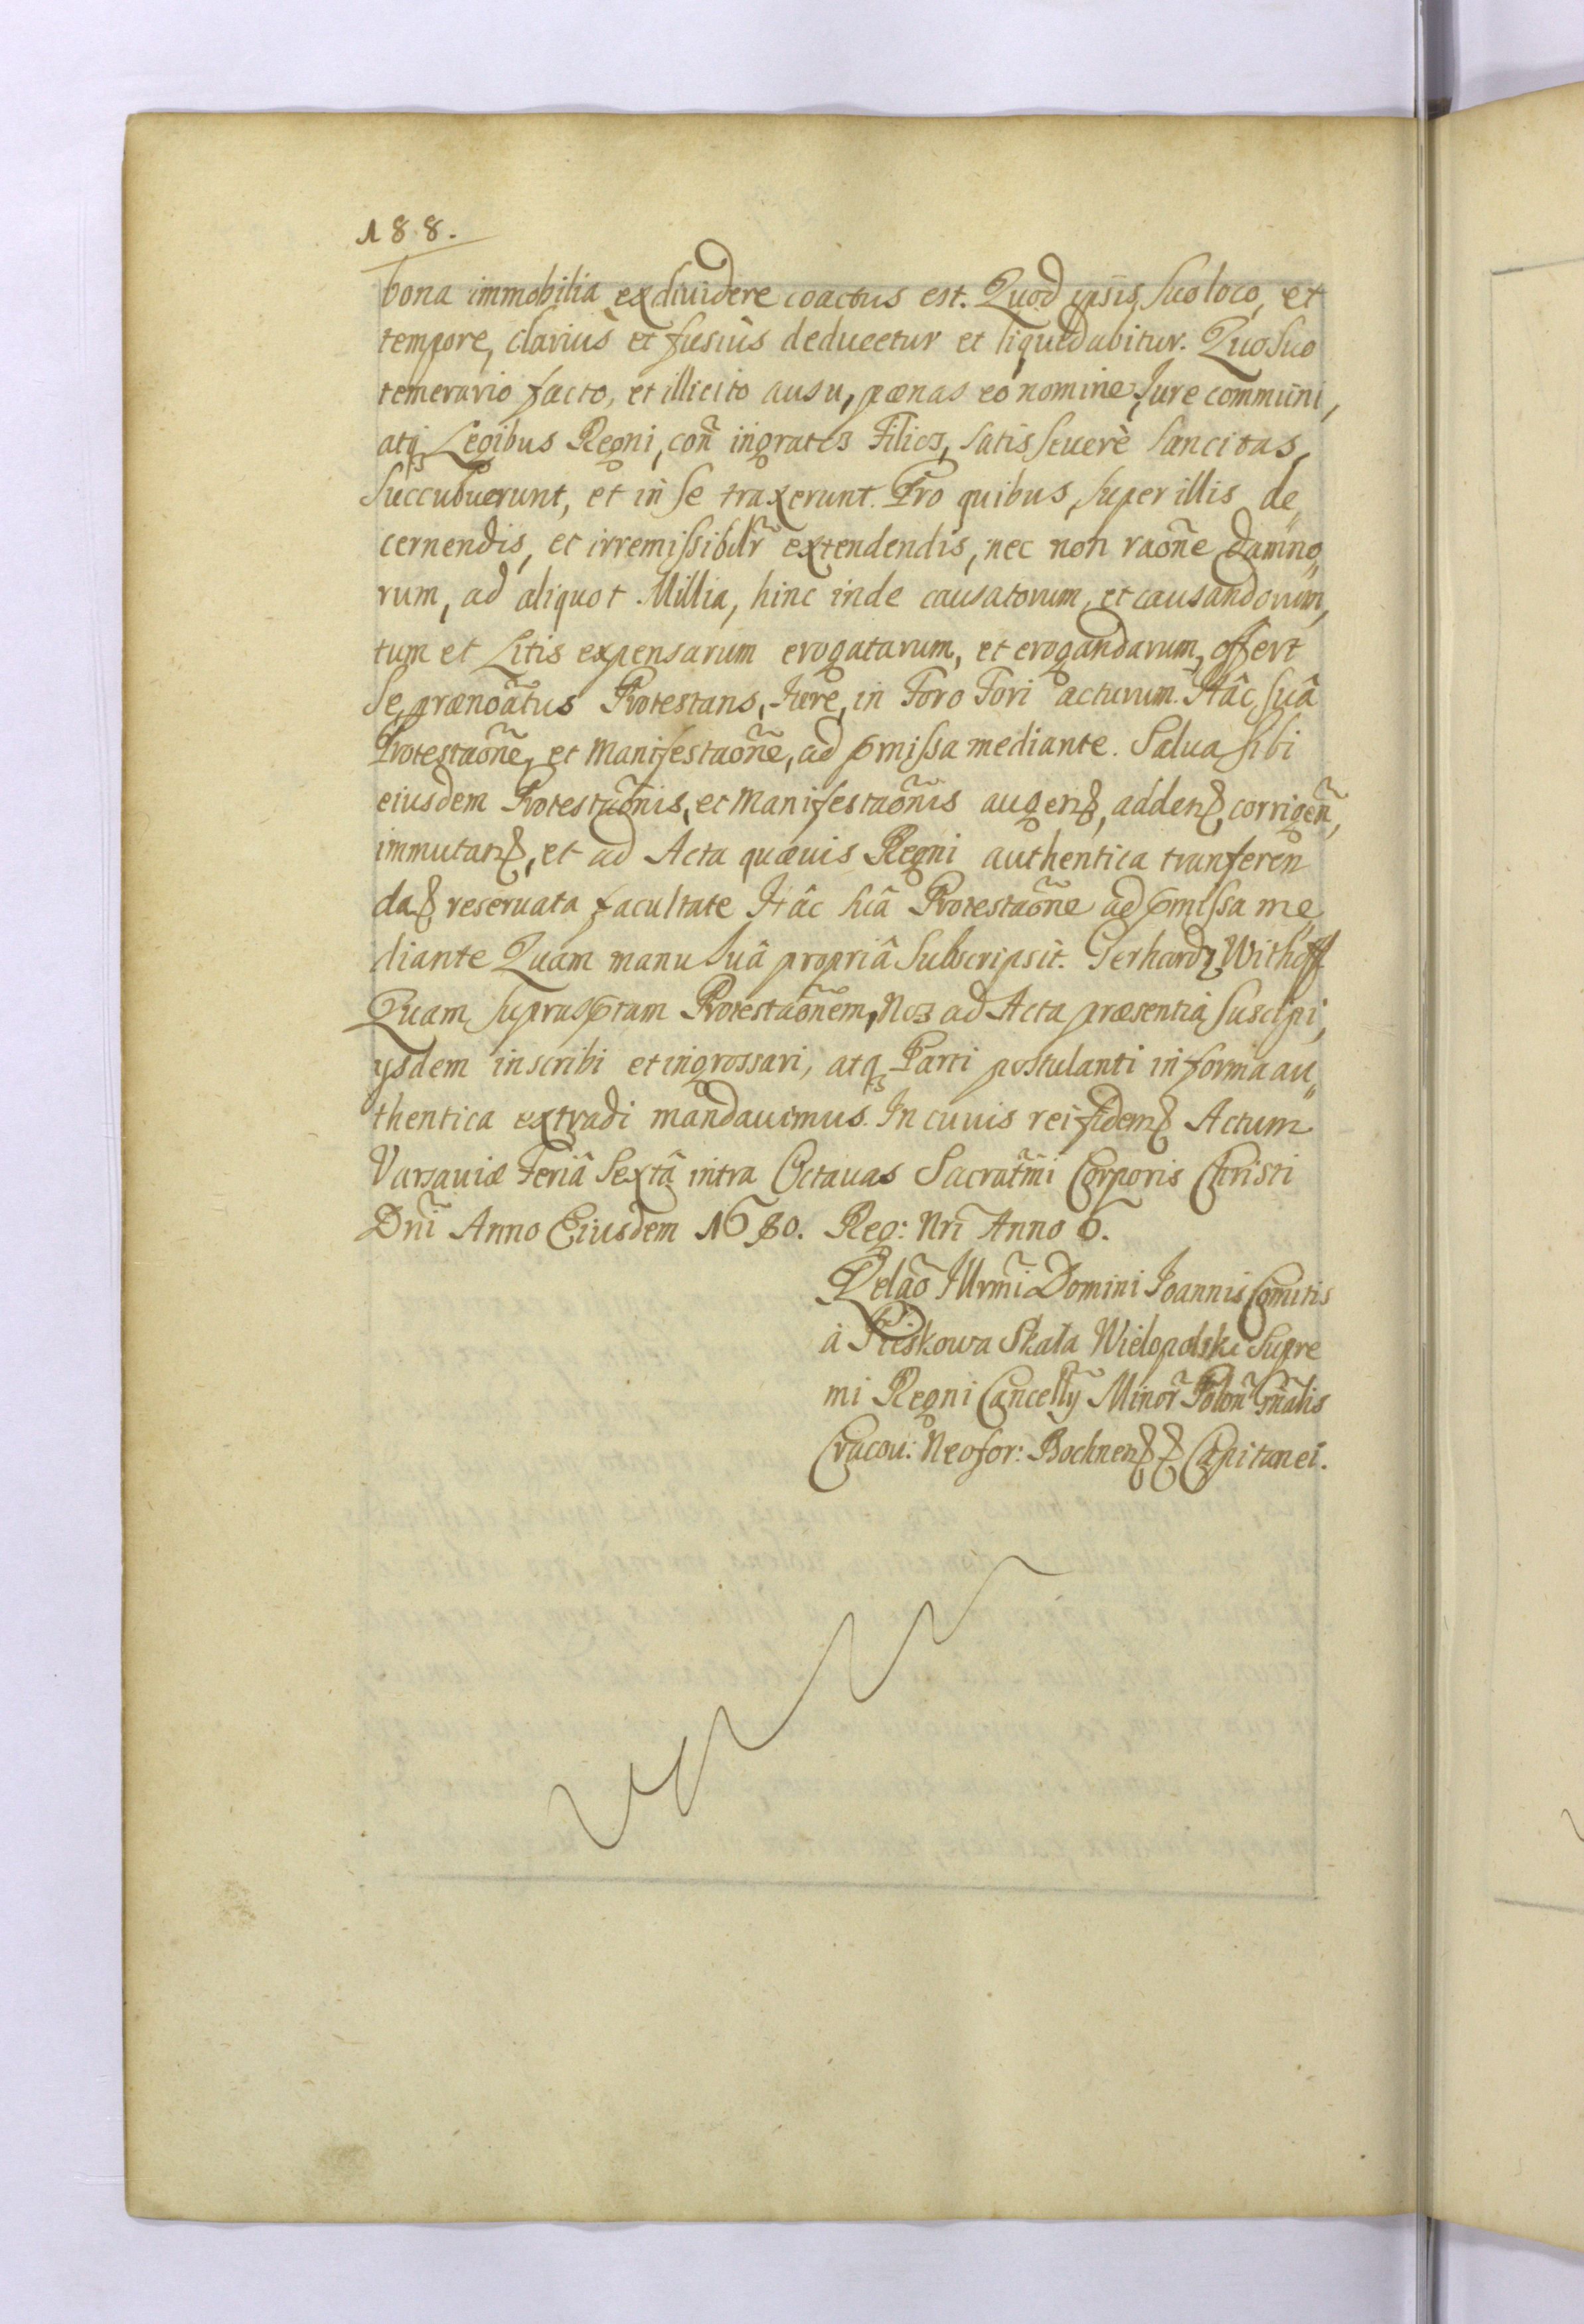 188.
bona immobilia exdiuidere coactus est. Quod ipsis, suo loco, et
tempore, clariùs et fusiùs deducetur et liquidabitur. Quo suo
temerario facto, et illicito ausu, pœnas eo nomine, Jure communi,
atq₃ Legibus Regni, coñ ingratos Filios, satis seuerè sancitas,
succubuerunt, et in se traxerunt. Pro quibus, super illis de„
cernendis, et irremissiblr̃ extendendis, nec non raõne damno„
rum, ad aliquot Millia, hinc inde causatorum, et causandorum,
tum et Litis expensarum erogatarum, et erogandarum, offert
se, prænoãtus Protestans, Jure, in Foro Fori acturum. Hâc suâ
Protestaõne, et Manifestaõne, ad pmissa mediante. Salua sibi
eiusdem Protestaõnis, et Manifestaõnis augen&, adden&, corrigeñ,
immutan&, et ad Acta quæuis Regni authentica tranferen
da& reseruata facultate Hâc suâ Protestaõne ad pmissa me„
diante Quam manu suâ propriâ subscripsit. Gerhardꝰ Withoff
Quam suprasptam Protestaõnem, Nos ad Acta præsentia suscipi,
ysdem inscribi et ingrossari, atq₃ Parti postulanti in forma au„
thentica extradi mandauimus. In cuius rei fidem& Actum
Varsauiæ Feriâ Sextâ intra Octauas Sacratm̃i Corporis Christi
Dñi Anno Eiusdem 1680. Reg: Nrĩ Anno 6.
Relaõ Illrmĩ Domini Joannis Comitis
à Pieskowa Skała Wielopolski Supre
mi Regni Cancellÿ Minor̃ Poloñ Gñalis
Cracou: Neofor: Bochnen& & Capitanei.